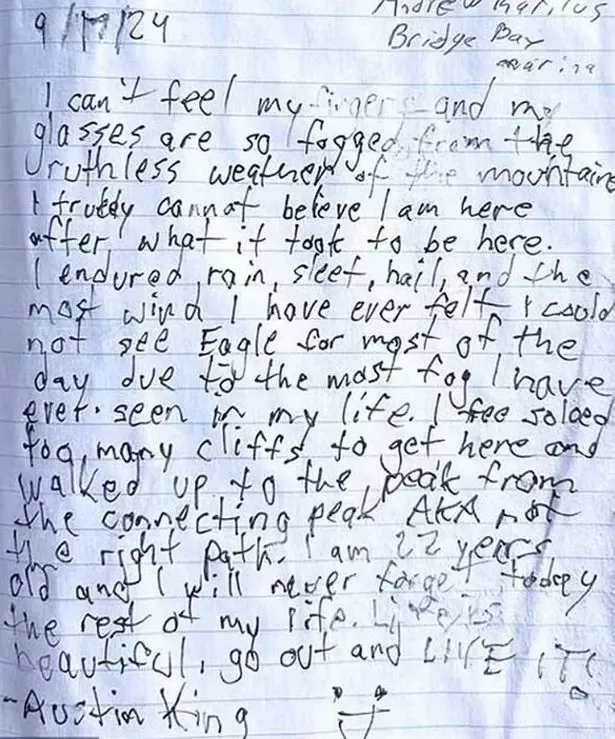 9/17/24
Bridge Bay
marina
I can't feel my fingers and my
glasses are so fogged from the
ruthless weather of the mountains
I truely cannot believe I am here
after what it took to be here.
I endured rain, sleet, hail, and the
most wind I have ever felt I could
not see Eagle for most of the
day due to the most fog I have
ever seen in my life. I free soloed
too many cliffs to get here and
walked up to the peak from
the connecting peak AKA not
the right path. I am 22 years
old and I will never forget today
the rest of my life. Life is
beautiful, go out and LIVE IT!
-Austin King